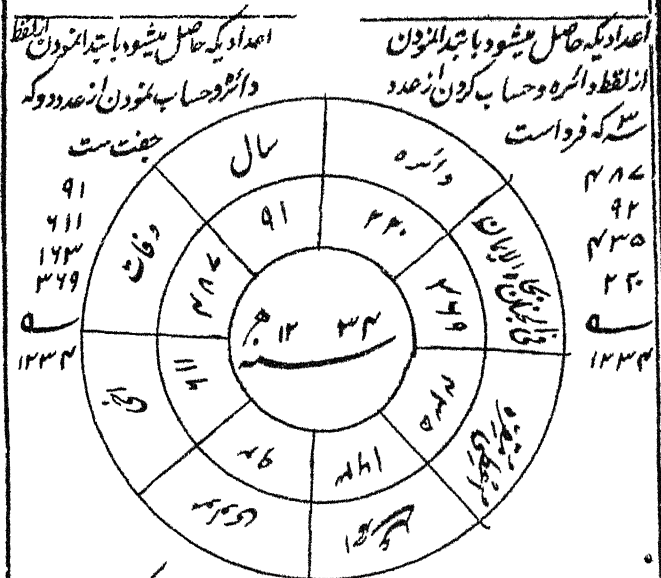 اعدادیکه حاصل میشود بابتدا نمودن
از لفظ دائره و حساب کردن از عدد
سه که فرد است
۴۸۷
۹۲
۴۳۵
۲۲۰
۱۲۳۴
اعدادیکه حاصل میشود بابتدا نمودن از لفظ
دائره و حساب نمودن از عدد دو که
جفت ست
۹۱
۶۱۱
۱۶۳
۳۶۹
۱۲۳۴
دائره
۲۲۰
سال
۹۱
وفات
۴۸۷
۶۱۱
مولوی
۹۲
۱۶۳
۴۳۵
۳۶۹
۱۲ ۳۴